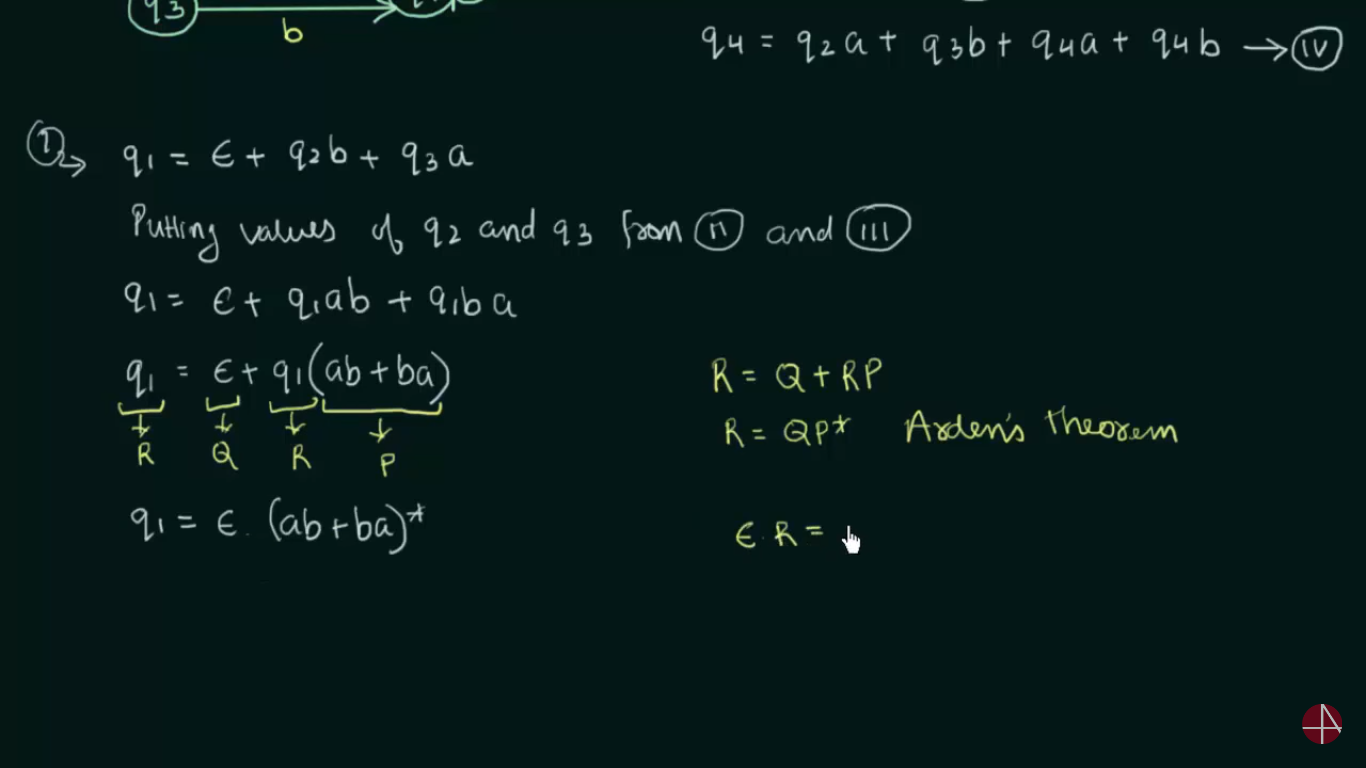 q3
b
q4 = q2a + q3b + q4a + q4b → IV
I → q1 = ε + q2b + q3a
Putting values of q2 and q3 from II and III
q1 = ε + q1ab + q1ba
q1 = ε + q1(ab + ba)
R Q R P
R = Q + RP
R = QP* Arden's theorem
q1 = ε. (ab + ba)*
ε. R =